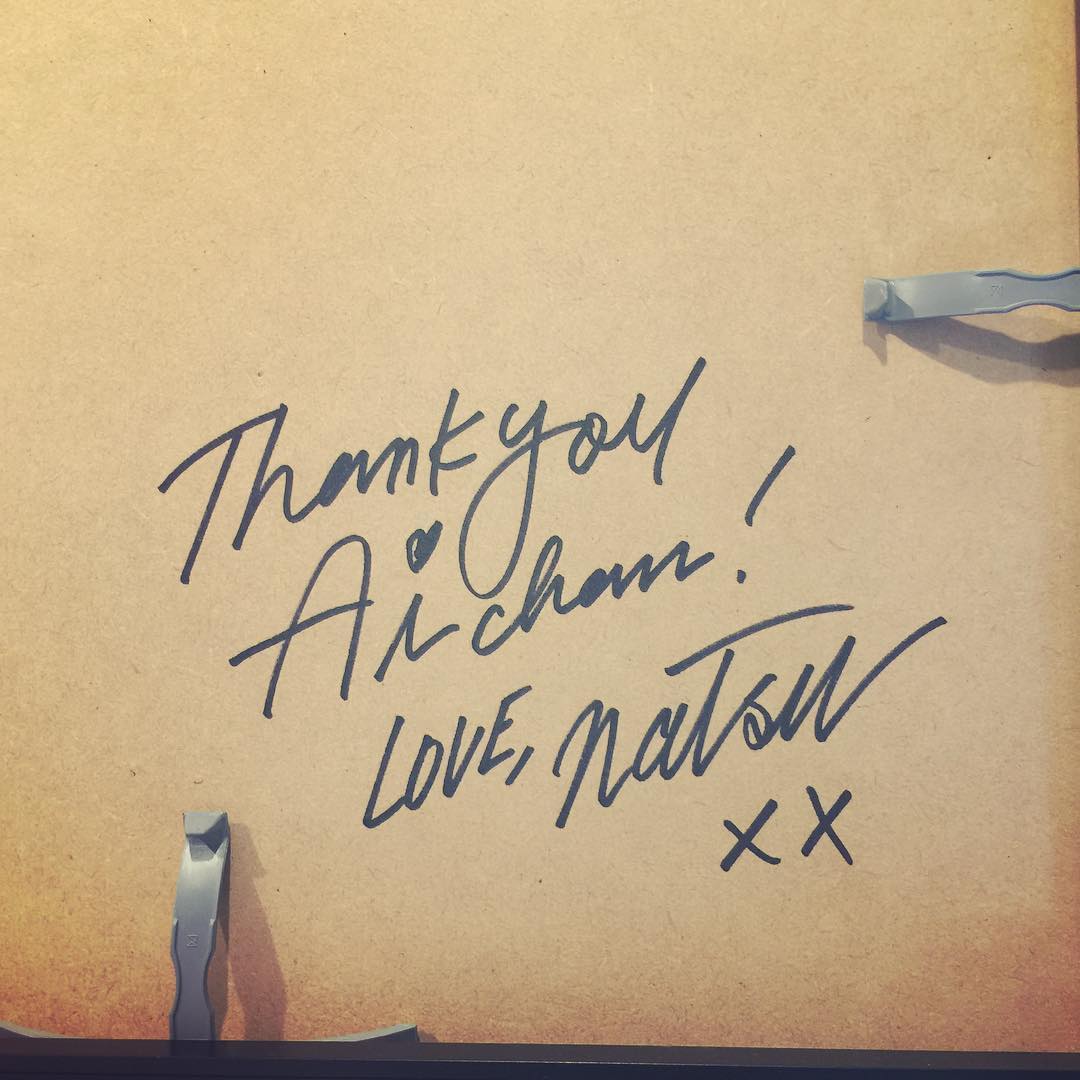 Thank you
Ai chan!
LOVE, Natsu
xx